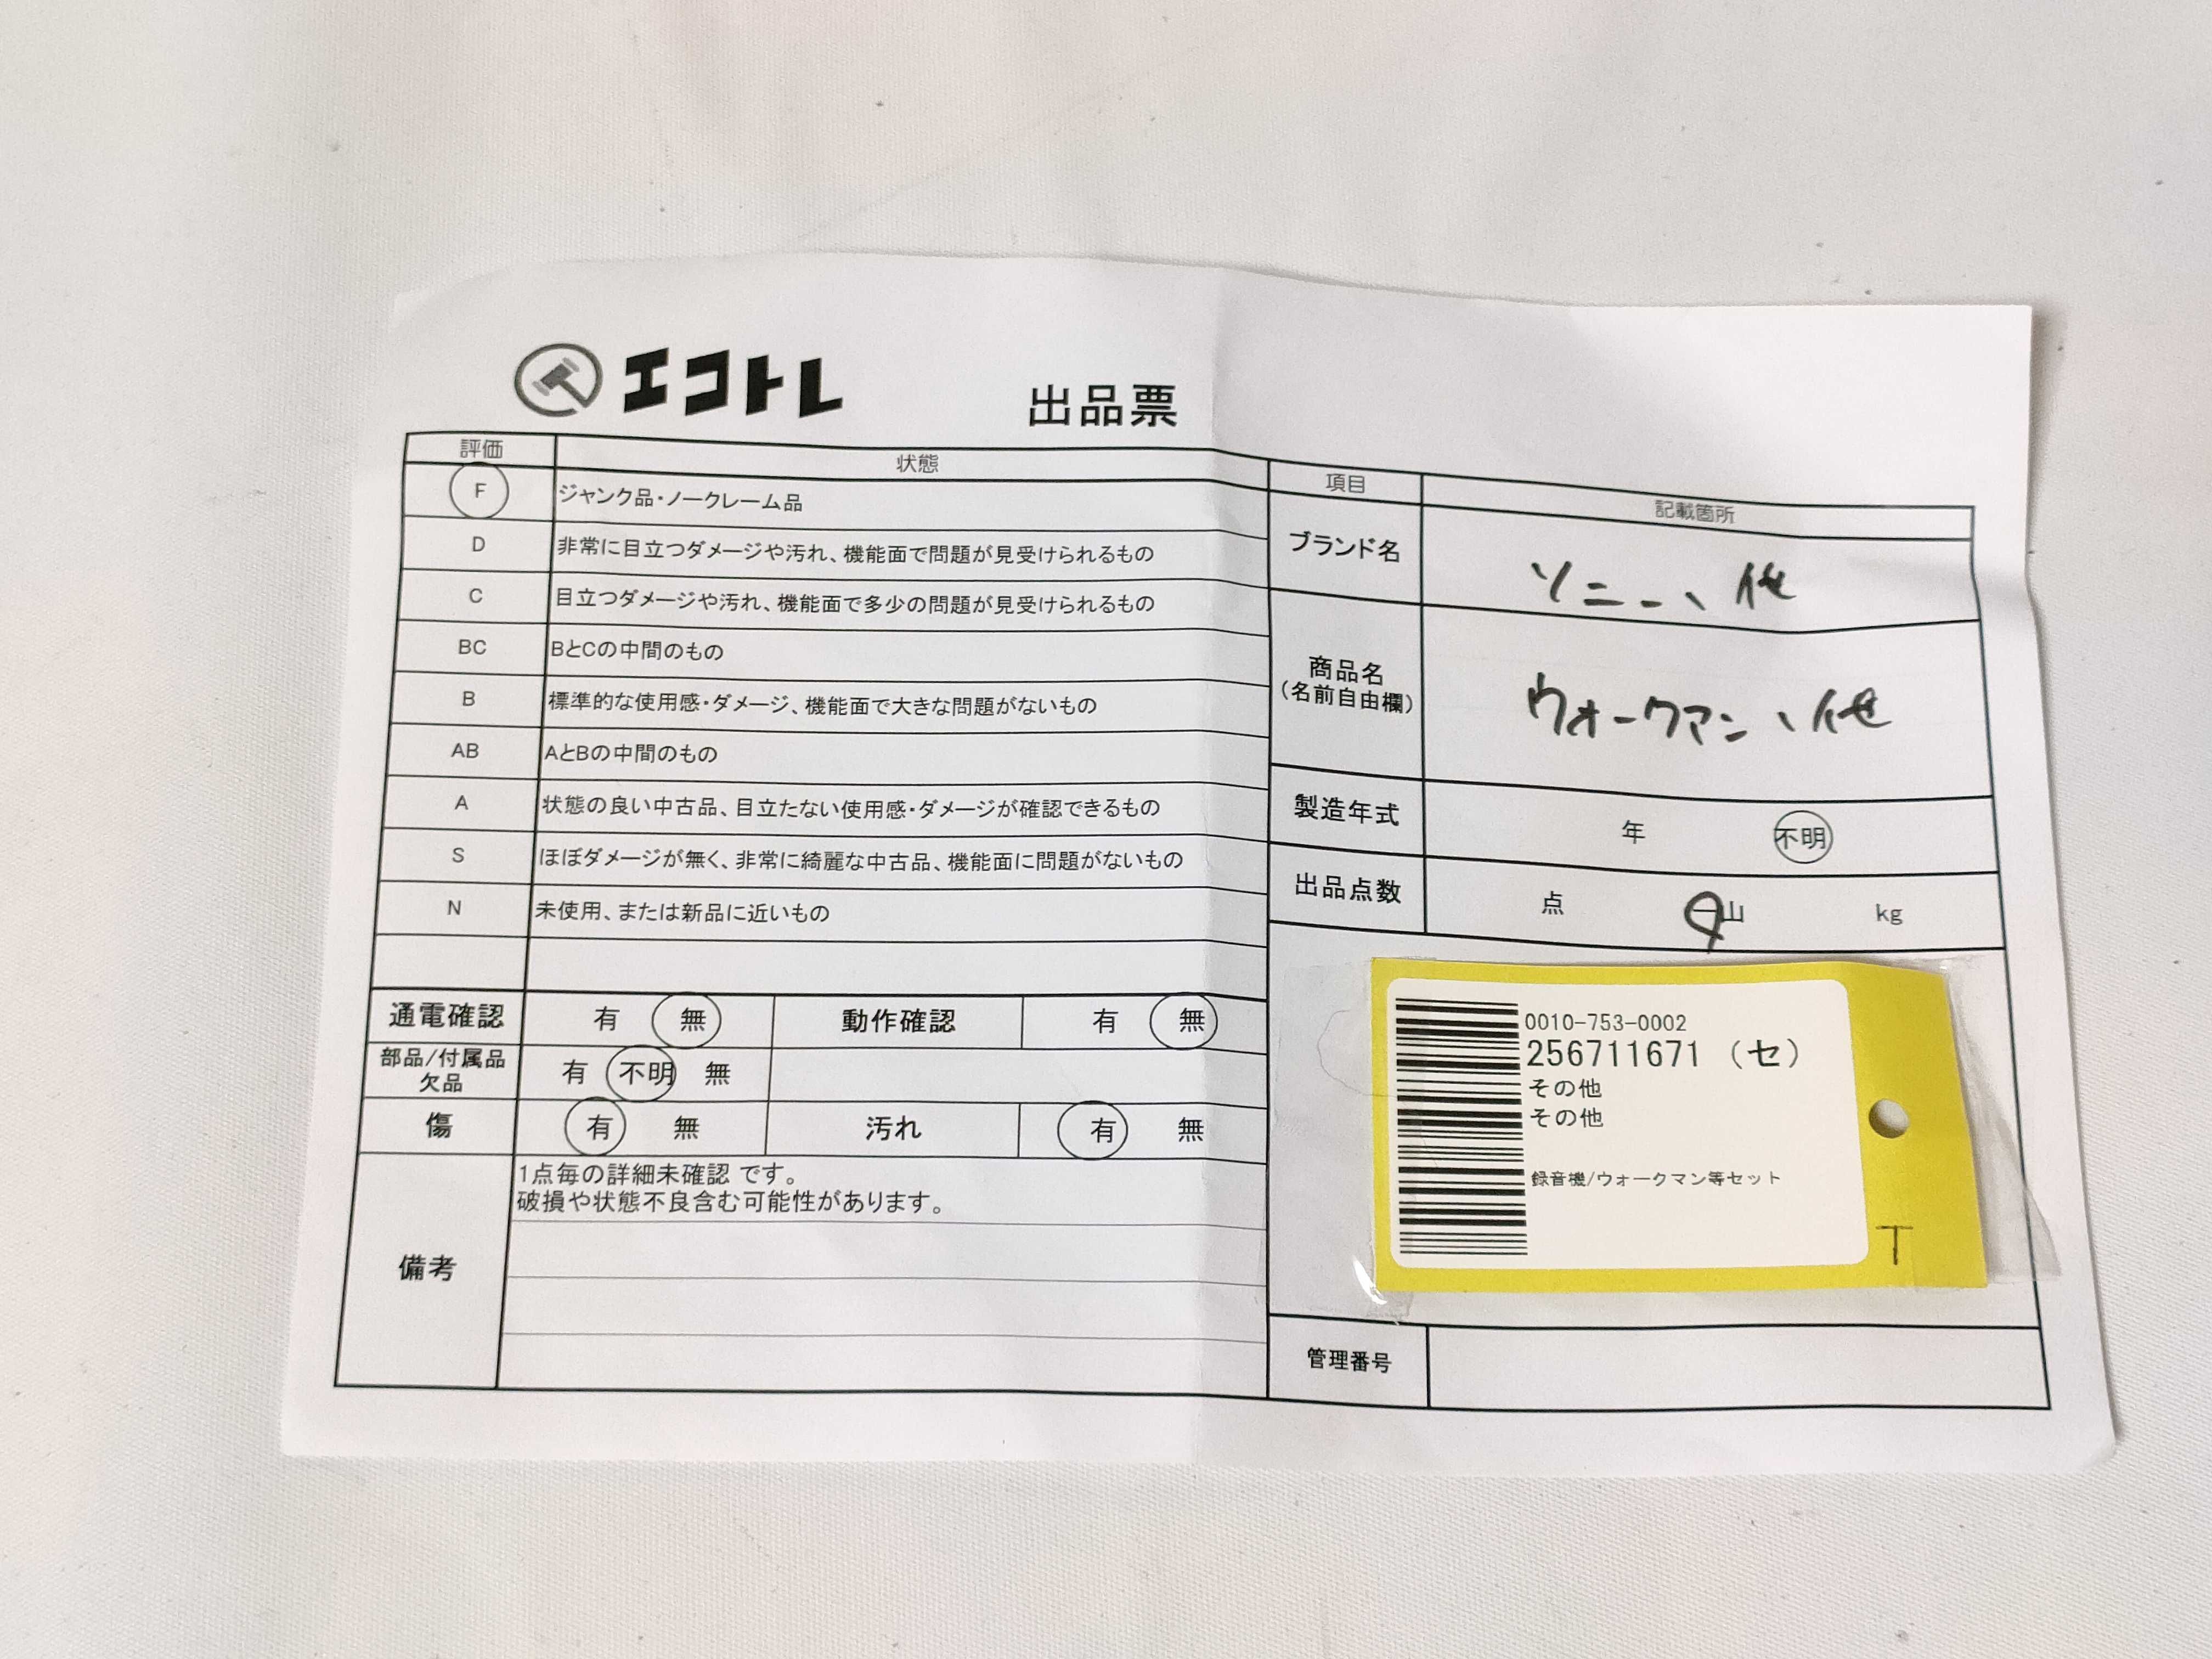 エコトレ
出品票
評価 状態
F ジャンク品・ノークレーム品
D 非常に目立つダメージや汚れ、機能面で問題が見受けられるもの
C 目立つダメージや汚れ、機能面で多少の問題が見受けられるもの
BC BとCの中間のもの
B 標準的な使用感・ダメージ、機能面で大きな問題がないもの
AB AとBの中間のもの
A 状態の良い中古品、目立たない使用感・ダメージが確認できるもの
S ほぼダメージが無く、非常に綺麗な中古品、機能面に問題がないもの
N 未使用、または新品に近いもの
通電確認 有 無 動作確認 有 無
部品/付属品
欠品
有 不明 無
傷 有 無 汚れ 有 無
備考
1点毎の詳細未確認 です。
破損や状態不良含む可能性があります。
項目 記載箇所
ブランド名 ソニー、他
商品名
(名前自由欄)
ウォークマン、他
製造年式 年 不明
出品点数 点 一山 kg
0010-753-0002
256711671 (セ)
その他
その他
録音機/ウォークマン等セット
T
管理番号